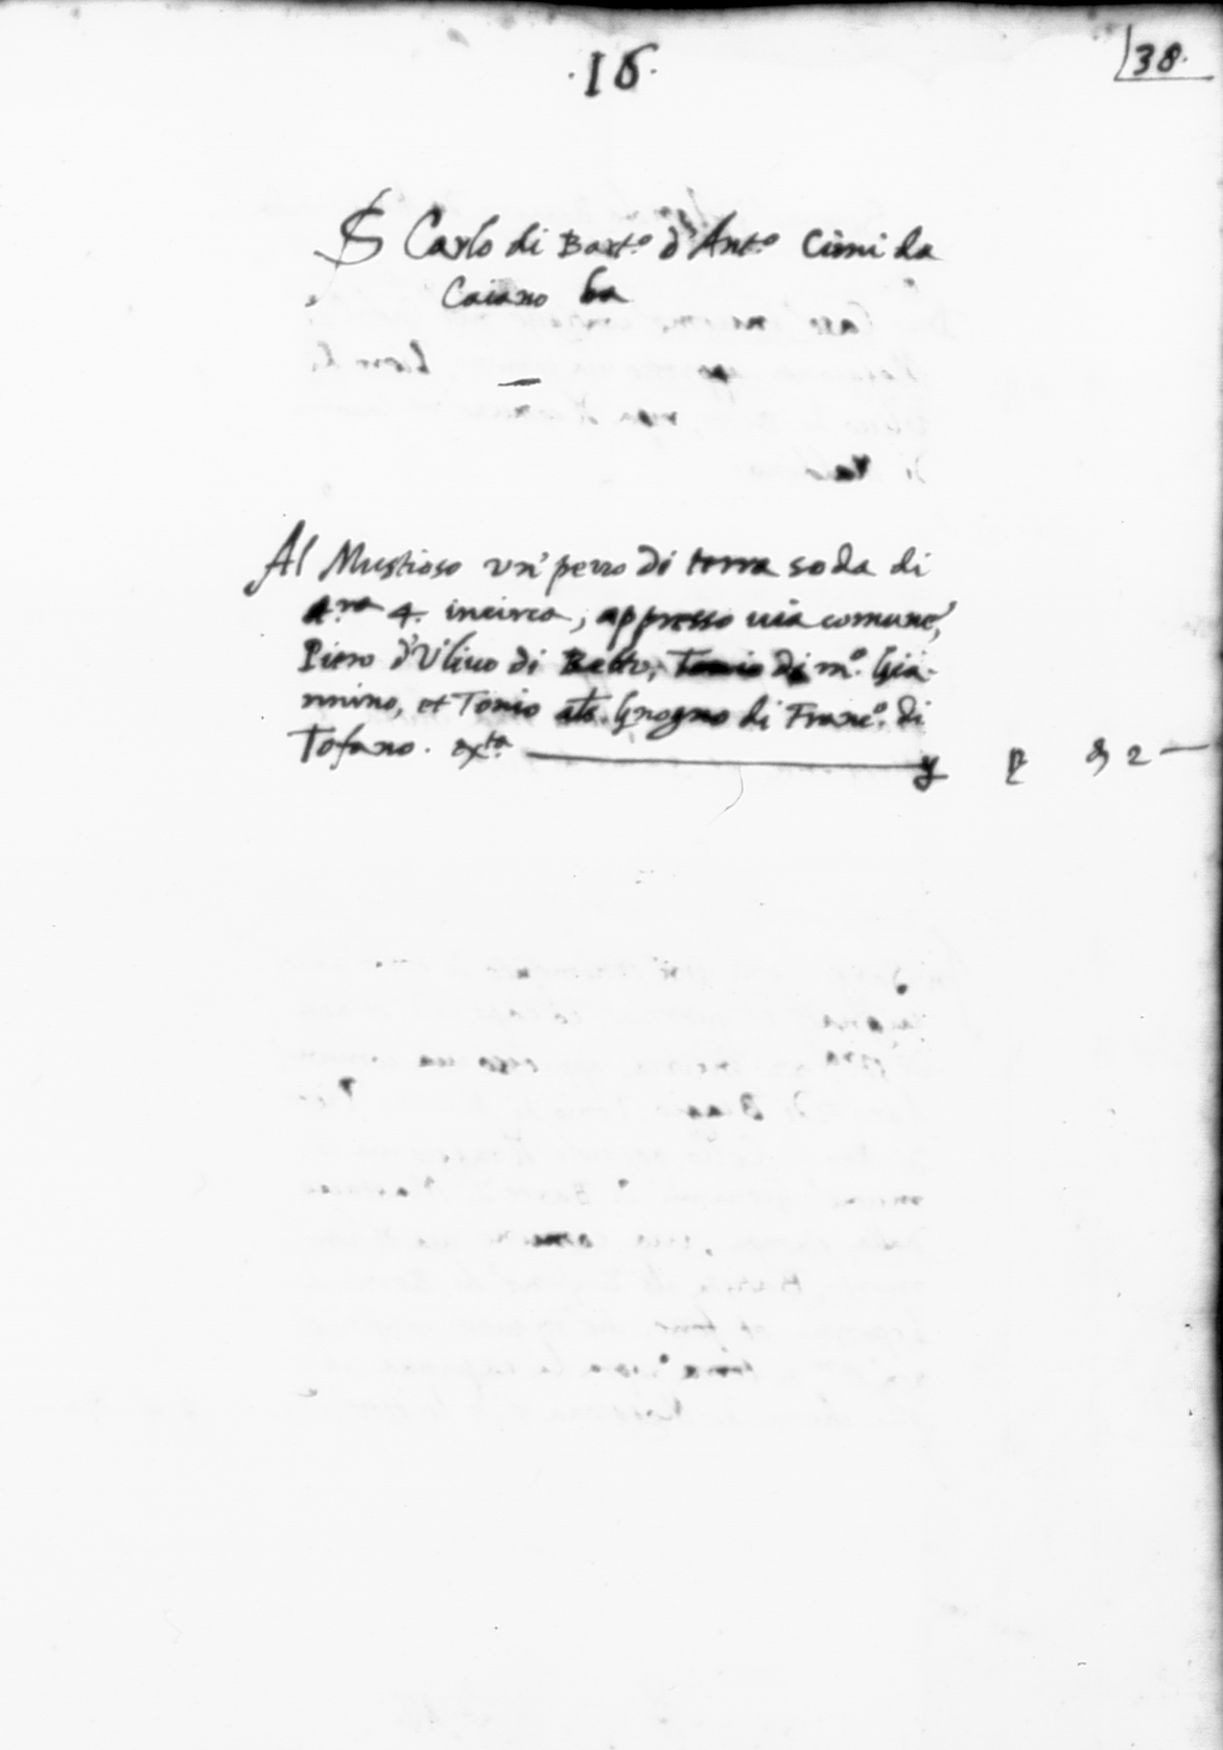 ·16·
38·
S Carlo di Bart.o d'Ant.o Cimi da
Caiano ha
Al Mustioso un' pezzo di terra soda di
4. incirca, appresso via comune,
Piero d'Ulivo di Tonio di m.o Gia-
nnino, et Tonio als. Gnogno di Franc.o di
Tofano. exta
2